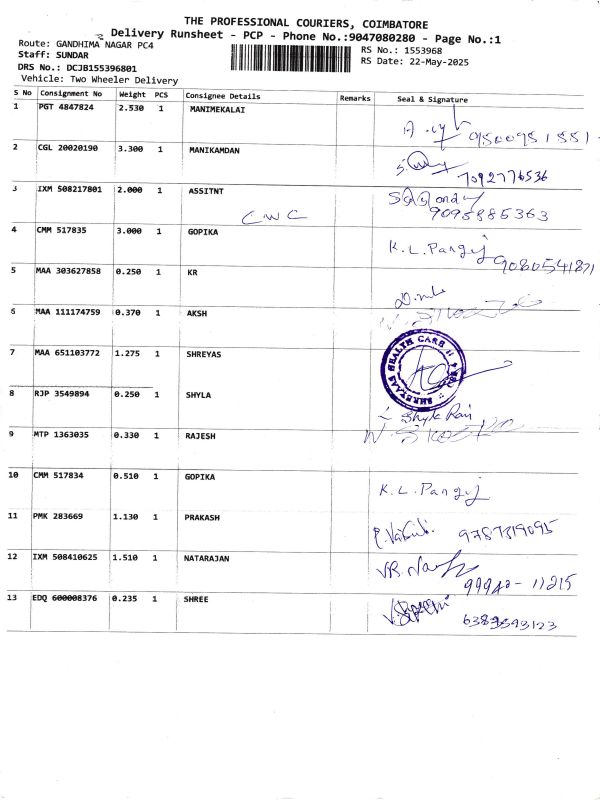 THE PROFESSIONAL COURIERS, COIMBATORE
Delivery Runsheet - PCP - Phone No.:9047080280 - Page No.:1
Route: GANDHIMA NAGAR PC4
RS No.: 1553968
Staff: SUNDAR
RS Date: 22-May-2025
DRS No.: DCJB155396801
Vehicle: Two Wheeler Delivery
S No Consignment No Weight PCS Consignee Details Remarks Seal & Signature
1 PGT 4847824 2.530 1 MANIMEKALAI
2 CGL 20020190 3.300 1 MANIKAMDAN
7092776536
3 IXM 508217801 2.000 1 ASSITNT
CWC
9095885363
4 CMM 517835 3.000 1 GOPIKA K.L.Pangij
9080541871
5 MAA 303627858 0.250 1 KR
6 MAA 111174759 0.370 1 AKSH
7 MAA 651103772 1.275 1 SHREYAS
HEALTH CARE
8 RJP 3549894 0.250 1 SHYLA
Shyla Rani
9 MTP 1363035 0.330 1 RAJESH
10 CMM 517834 0.510 1 GOPIKA K.L.Pangij
11 PMK 283669 1.130 1 PRAKASH
9787319095
12 IXM 508410625 1.510 1 NATARAJAN
99940-11215
13 EDQ 600008376 0.235 1 SHREE
6389393123